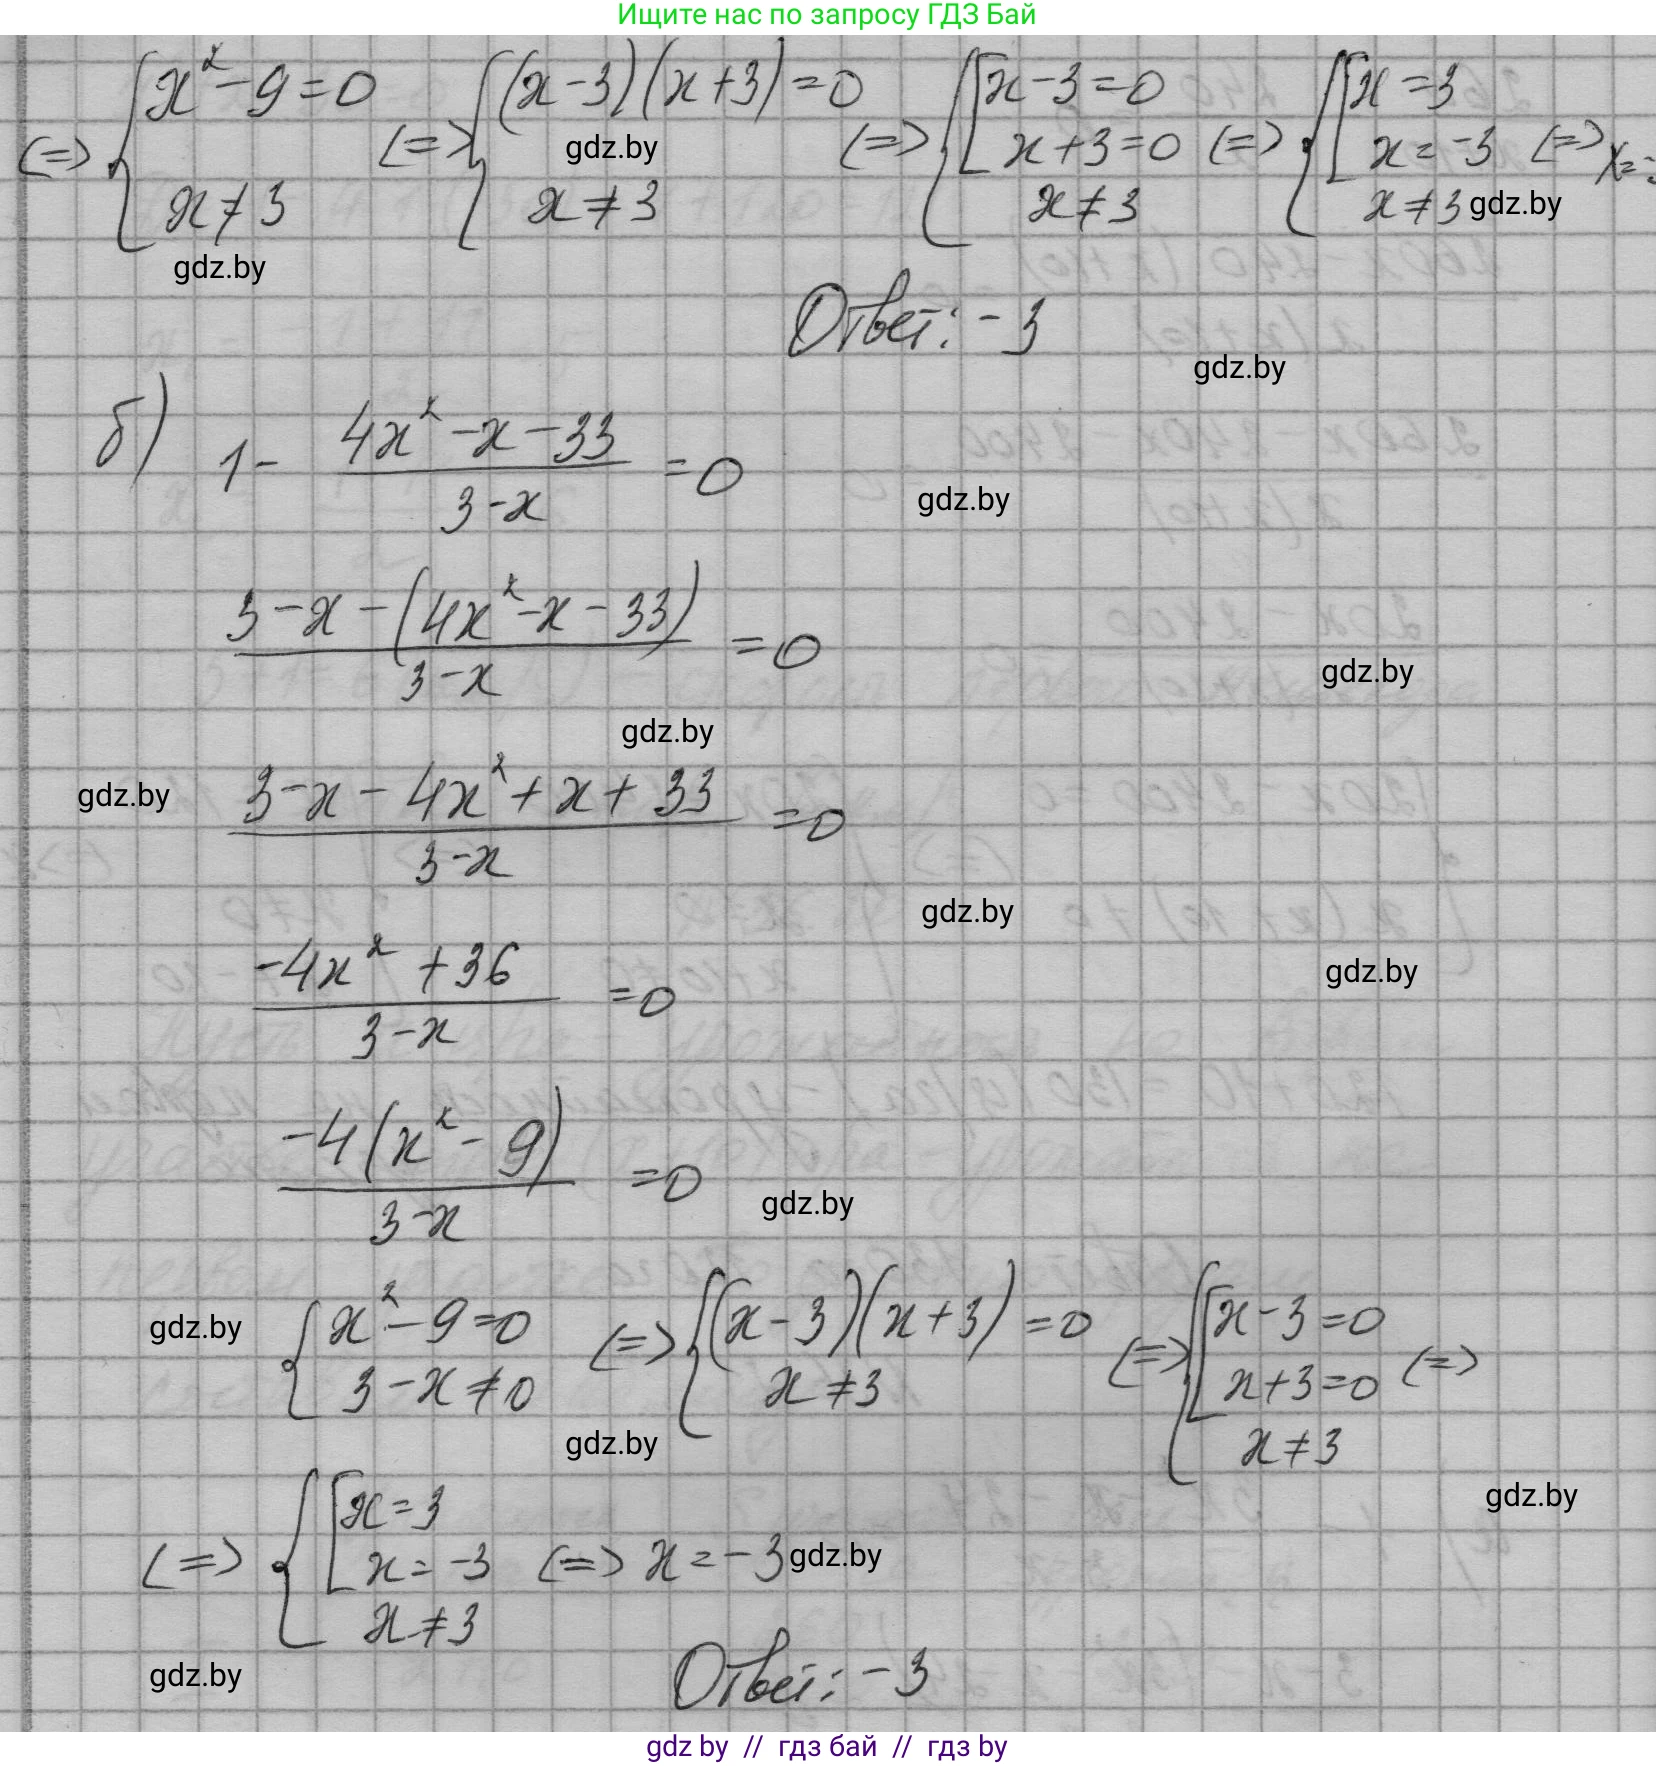 Ищите нас по запросу ГДЗ Бай
(=> { x² - 9 = 0 ; x ≠ 3 (=> { (x-3)(x+3) = 0 ; x ≠ 3 (=> { [ x-3=0 ; x+3=0 ; x ≠ 3 (=> { [ x = 3 ; x = -3 ; x ≠ 3 (=> x=-3
gdz.by
gdz.by
gdz.by
Ответ: -3
gdz.by
б) 1 - (4x² - x - 33)/(3-x) = 0
gdz.by
(3-x-(4x²-x-33))/(3-x) = 0
gdz.by
gdz.by
gdz.by
(3-x-4x²+x+33)/(3-x) = 0
gdz.by
(-4x²+36)/(3-x) = 0
gdz.by
(-4(x²-9))/(3-x) = 0
gdz.by
gdz.by
{ x²-9=0 ; 3-x≠0 (=> { (x-3)(x+3)=0 ; x≠3 (=> { [ x-3=0 ; x+3=0 ; x≠3 (=>
gdz.by
gdz.by
(=> { [ x=3 ; x=-3 ; x≠3 (=> x = -3
gdz.by
gdz.by
Ответ: -3
gdz by // гдз бай // гдз by